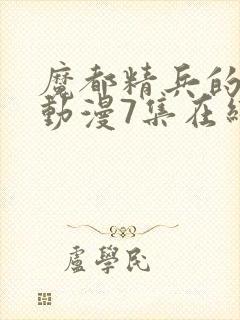 魔都精兵的
動漫7集在
盧學民